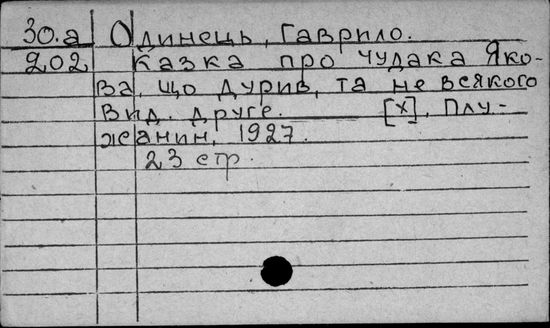 30.а Одинець, Гаврило.
202 Казка про чудака Яко-
ва, що дурив, та не всякого
Вид. друге. [Х], Плу-
жанин, 1927.
23 стр.